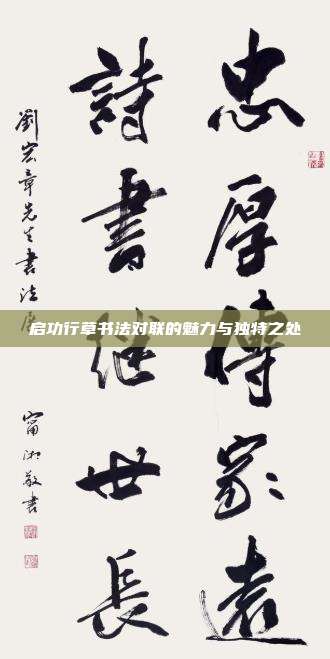 忠厚傳家遠
詩書继世長
劉宏章先生書法
敬書
启功行草书法对联的魅力与独特之处